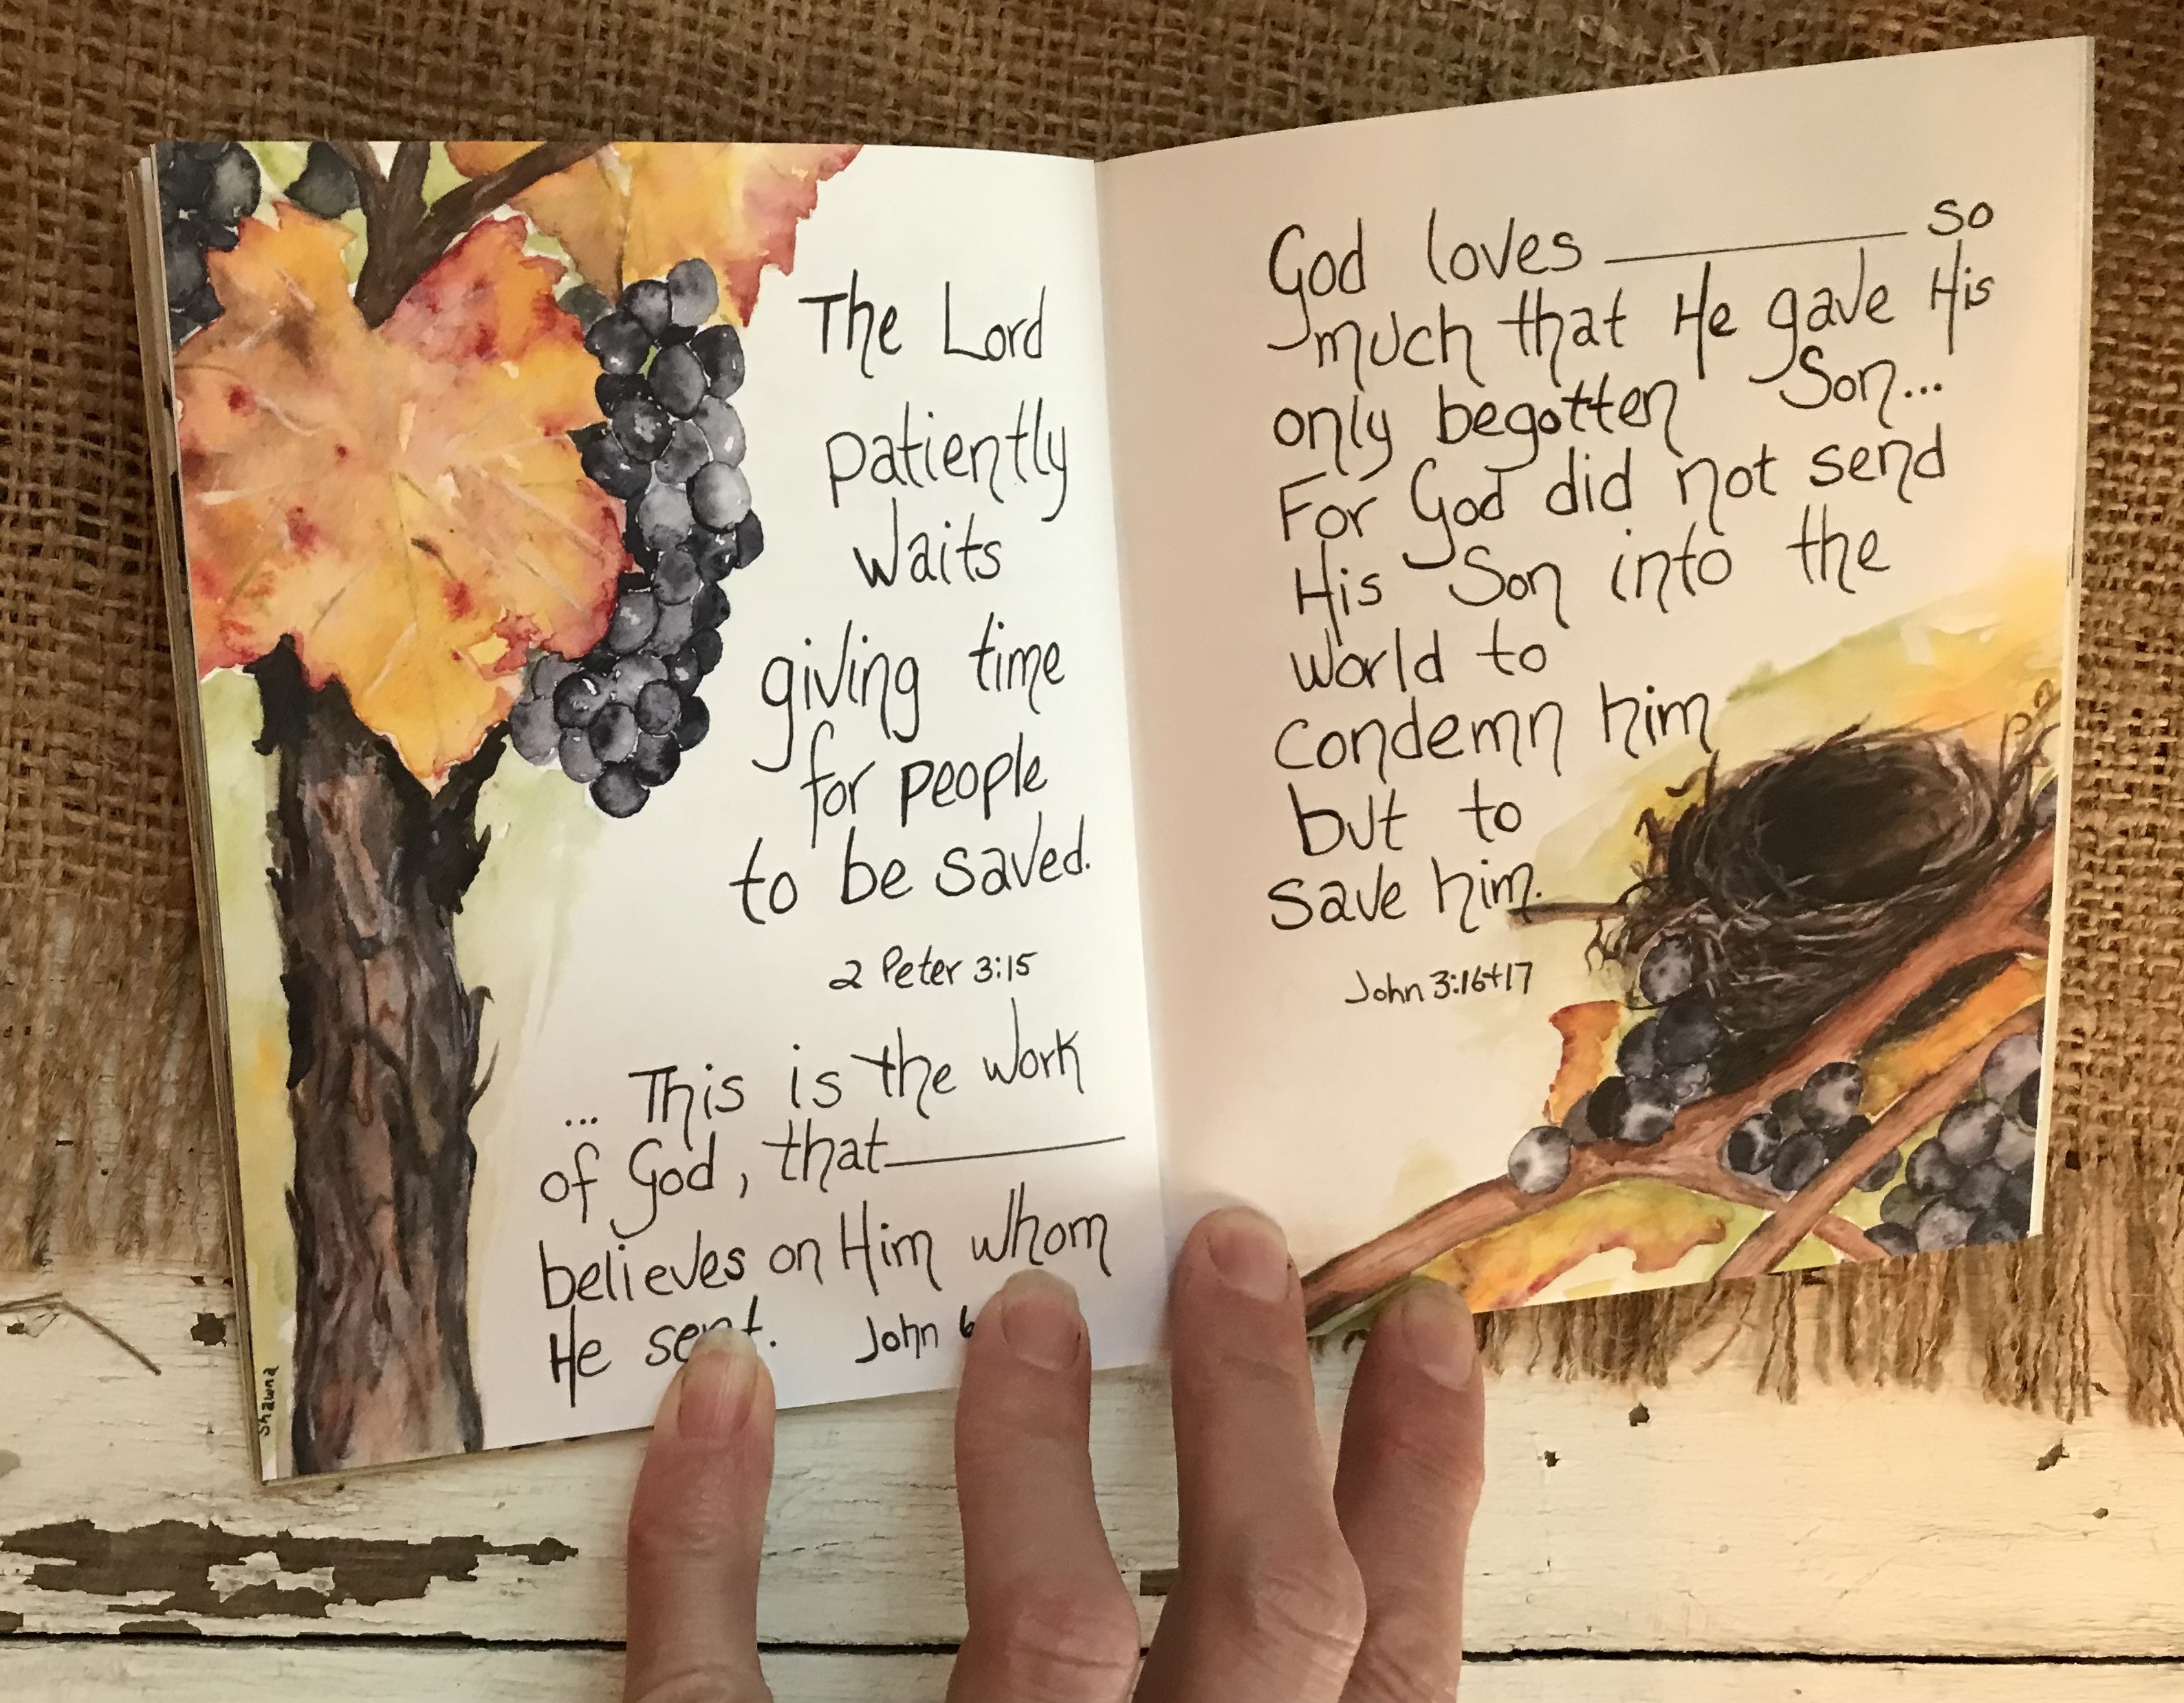 The Lord
patiently
waits
giving time
for people
to be saved.
2 Peter 3:15
... This is the work
of God, that
believes on Him whom
He sent. John 6
Shawna
God loves so
much that He gave His
only begotten Son...
For God did not send
His Son into the
world to
condemn him
but to
save him.
John 3:16+17